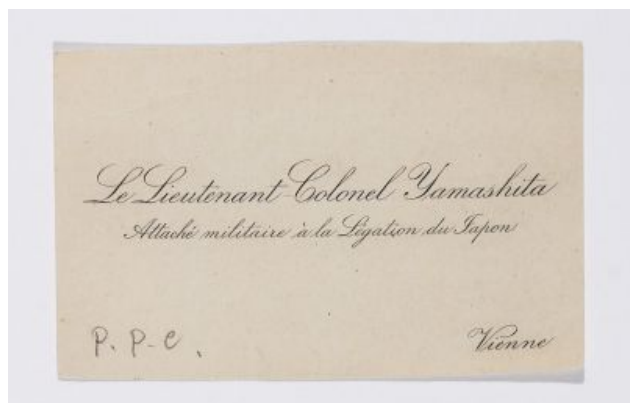 Le Lieutenant-Colonel Yamashita
Attaché militaire à la Légation du Japon
P. P-C.
Vienne